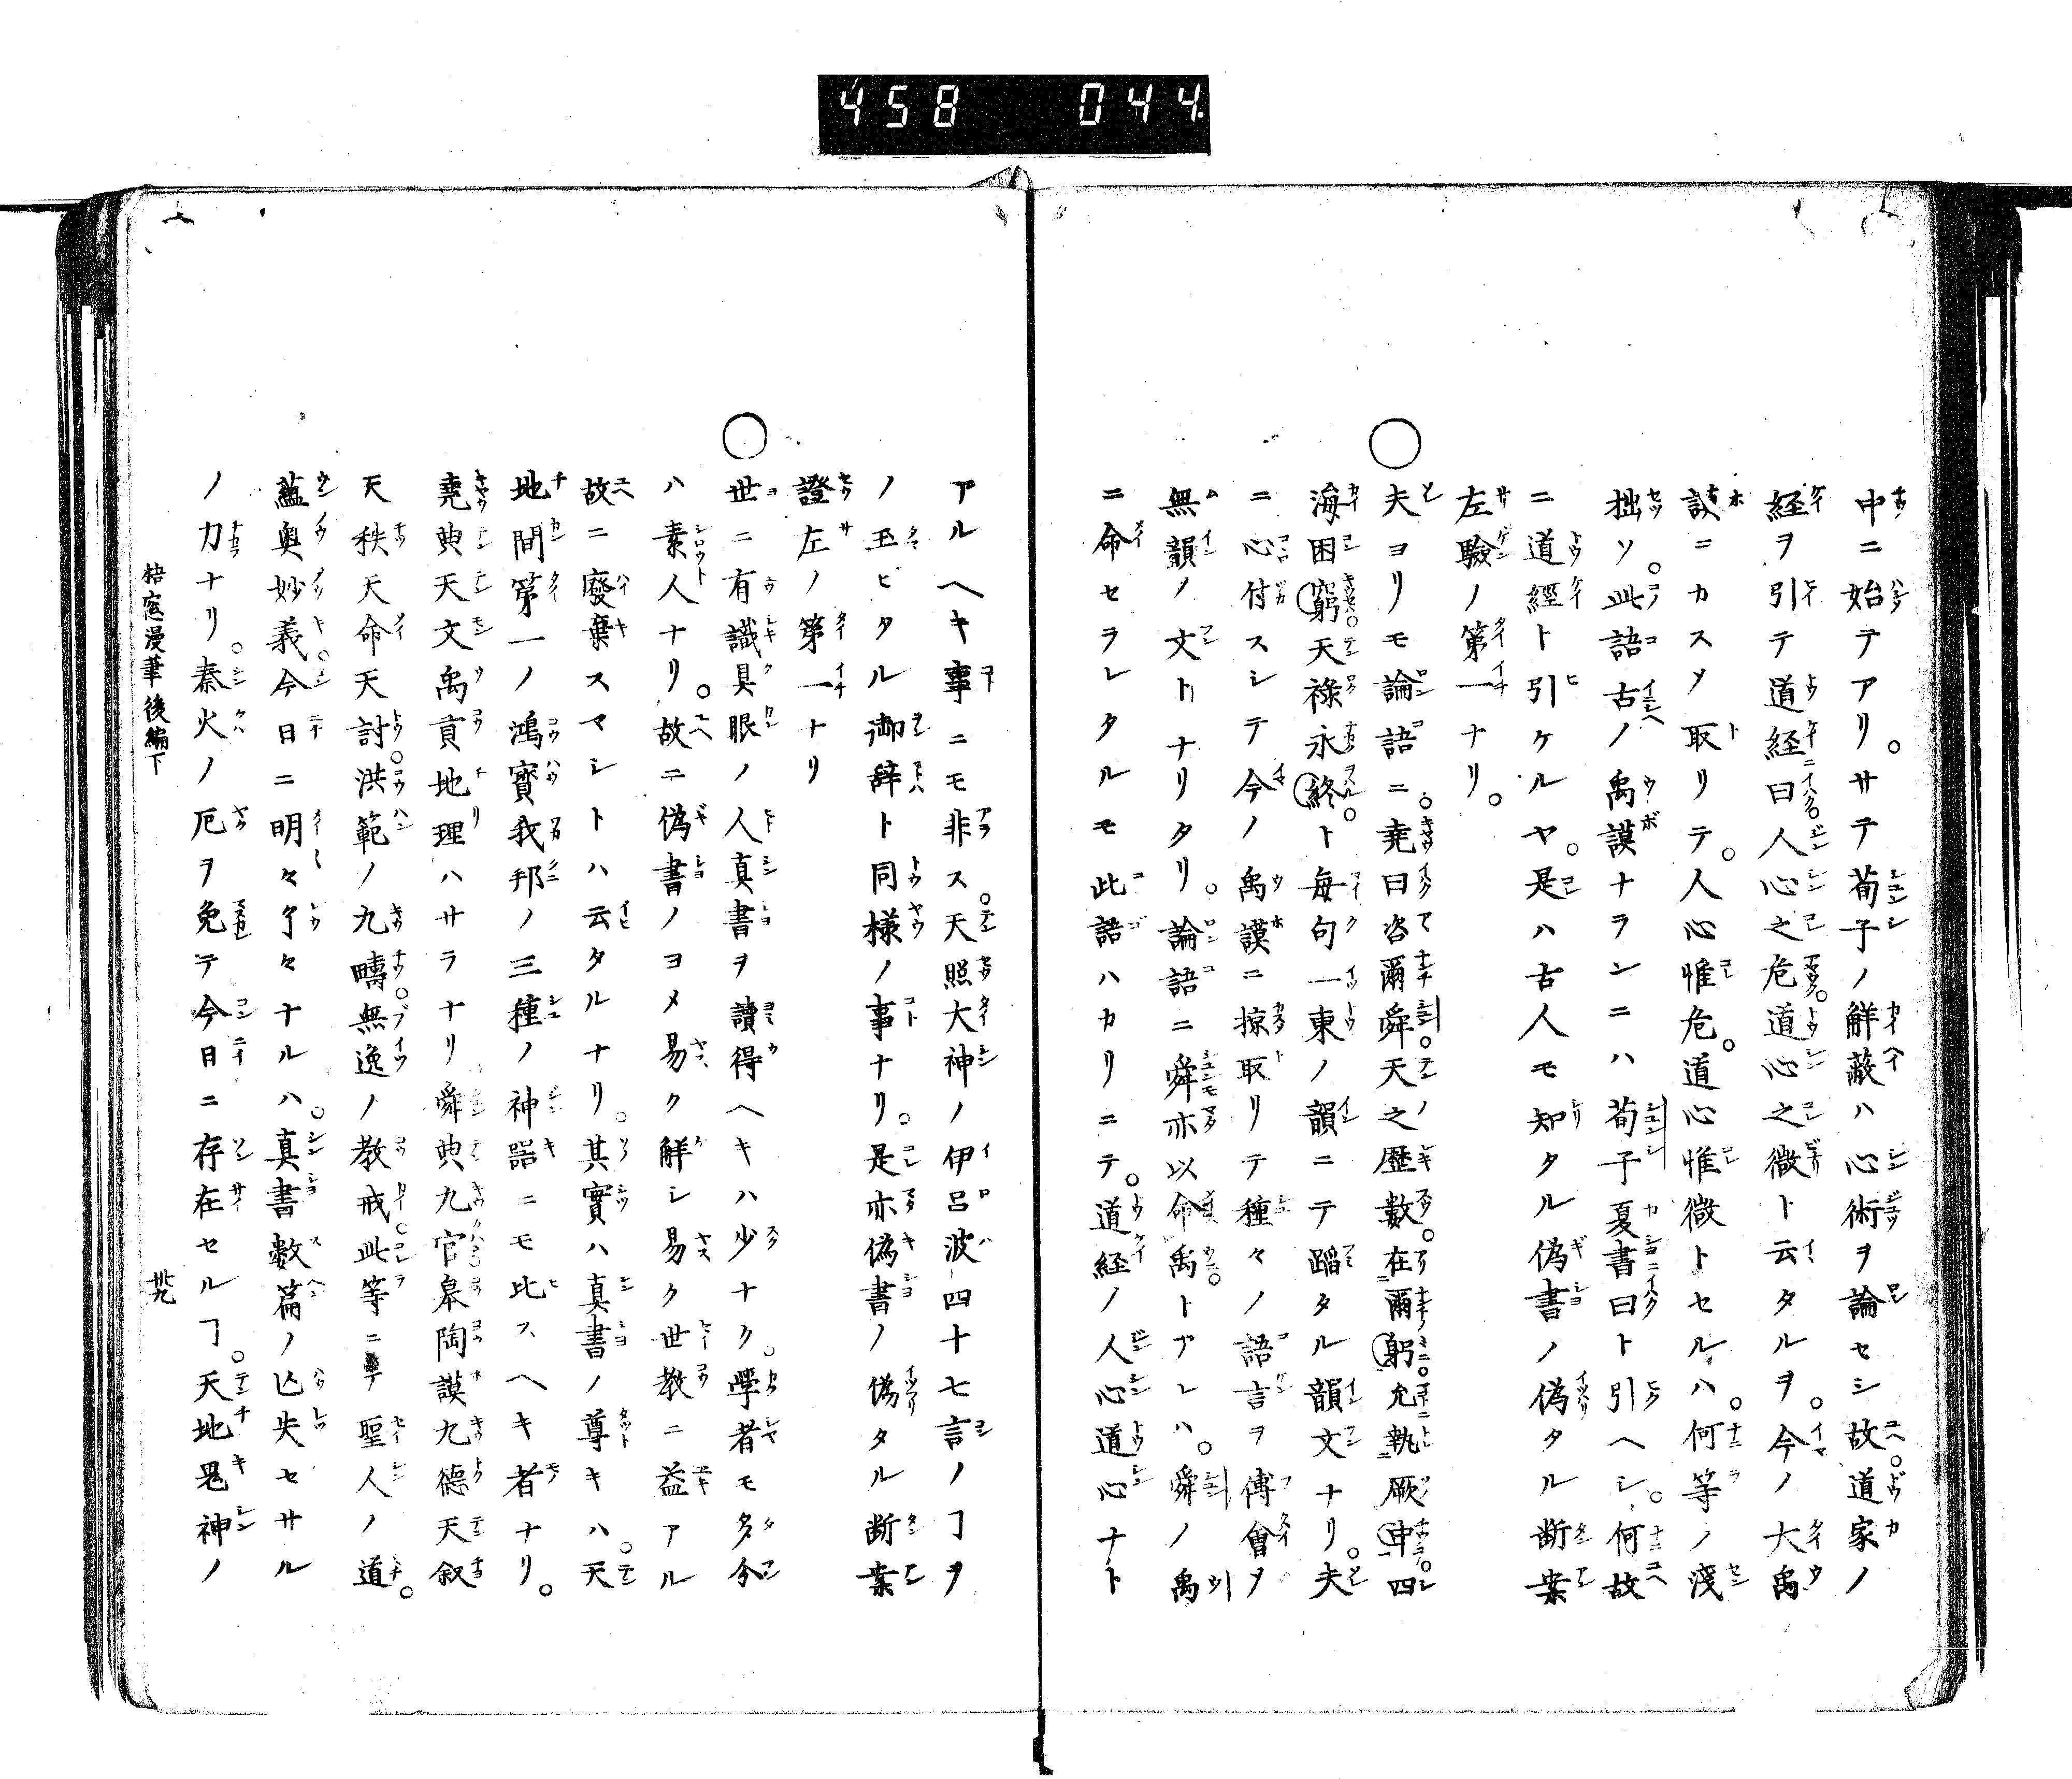 458 044
中ニ始テアリ。サテ荀子ノ解蔽ハ心術ヲ論セシ故。道家ノ
経ヲ引テ道経曰人心之危。道心之微ト云タルヲ。今ノ大禹
謨ニカスメ取リテ。人心惟危。道心惟微トセルハ。何等ノ淺
拙ソ。此語古ノ禹謨ナランニハ荀子夏書曰ト引ヘシ。何故
ニ道經ト引ケルヤ。是ハ古人モ知タル偽書ノ偽タル断案
左驗ノ第一ナリ。
○夫ヨリモ論語ニ。堯曰咨爾舜。天之歴數。在爾躬。允執厥中。四
海困窮。天祿永終。ト毎句一東ノ韻ニテ蹈タル韻文ナリ。夫
ニ心付スシテ今ノ禹謨ニ掠取リテ種々ノ語言ヲ傅會シ
無韻ノ文トナリタリ。論語ニ舜亦以命禹。トアレハ。舜ノ禹
ニ命セラレタルモ此語ハカリニテ。道経ノ人心道心ナト
アルヘキ事ニモ非ス。天照大神ノ伊呂波四十七言ノヿヲ
ノ玉ヒタル御辞ト同様ノ事ナリ。是亦偽書ノ偽タル断案
證左ノ第一ナリ
○世ニ有識具眼ノ人真書ヲ讀得ヘキハ少ナク。學者モ多分
ハ素人ナリ。故ニ偽書ノヨメ易ク解シ易ク世教ニ益アル
故ニ廢棄スマシトハ云タルナリ。其實ハ真書ノ尊キハ。天
地間第一ノ鴻寳我邦ノ三種ノ神器ニモ比スヘキ者ナリ。
堯典天文禹貢地理ハサラナリ舜典九官皋陶謨九德天叙
天秩天命天討。洪範ノ九疇。無逸ノ教戒。此等ニテ聖人ノ道。
蘊奥妙義。今日ニ明々了々ナルハ。真書數篇ノ亾失セサル
ノ力ナリ。秦火ノ厄ヲ免テ今日ニ存在セルヿ。天地鬼神ノ
梧窓漫筆後編下 丗九